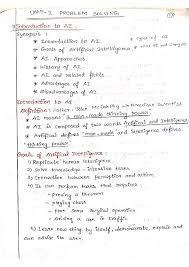 UNIT-I PROBLEM SOLVING
Introduction to AI:
Synopsis:
* Introduction to AI
* Types of AI
* Goals of Artificial Intelligence
* AI Approaches
* History of AI
* AI and related fields
* Advantages of AI
* Disadvantages of AI
Introduction to AI
Definition: John McCarthy
* AI means "a man-made thinking power"
* AI is composed of two words Artificial and Intelligence
* Artificial defines "man-made" and Intelligence defines
"thinking power"
Goals of Artificial Intelligence:
1) Replicate human intelligence
2) Solve knowledge-intensive tasks
3) Intelligent connection of perception and action
4) It can perform tasks that requires
- proving a theorem
- playing chess
- plan some surgical operation
- driving a car in traffic
5) Learn new thing by itself, demonstrate, explain and
can advise its user.